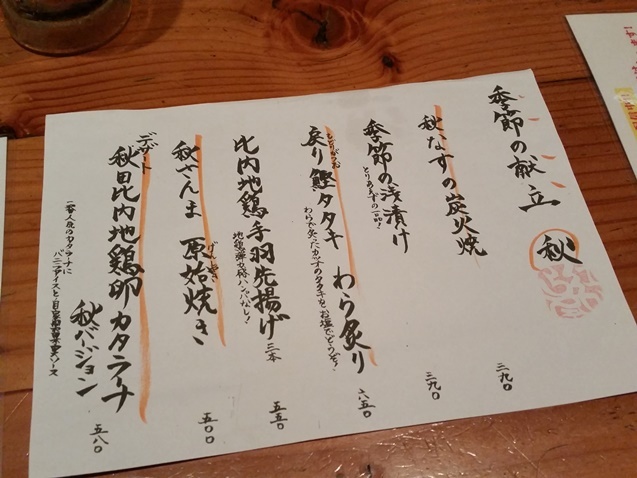 季節の献立 秋
秋なすの炭火焼 三九〇
季節の浅漬け 三九〇
とりあえずの一品!!
もどりがつお
戻り鰹タタキ わら炙り 六五〇
わらで炙ったカツオのタタキを、お塩でどうぞ!
比内地鶏手羽先揚げ 三本 五五〇
地鶏弾力感ハンパなし!
げんしやき
秋さんま 原始焼き 五〇〇
デザート
秋田比内地鶏卵カタラーナ
秋バージョン 五八〇
一番人気のカタラーナに
バニラアイスと
ソース